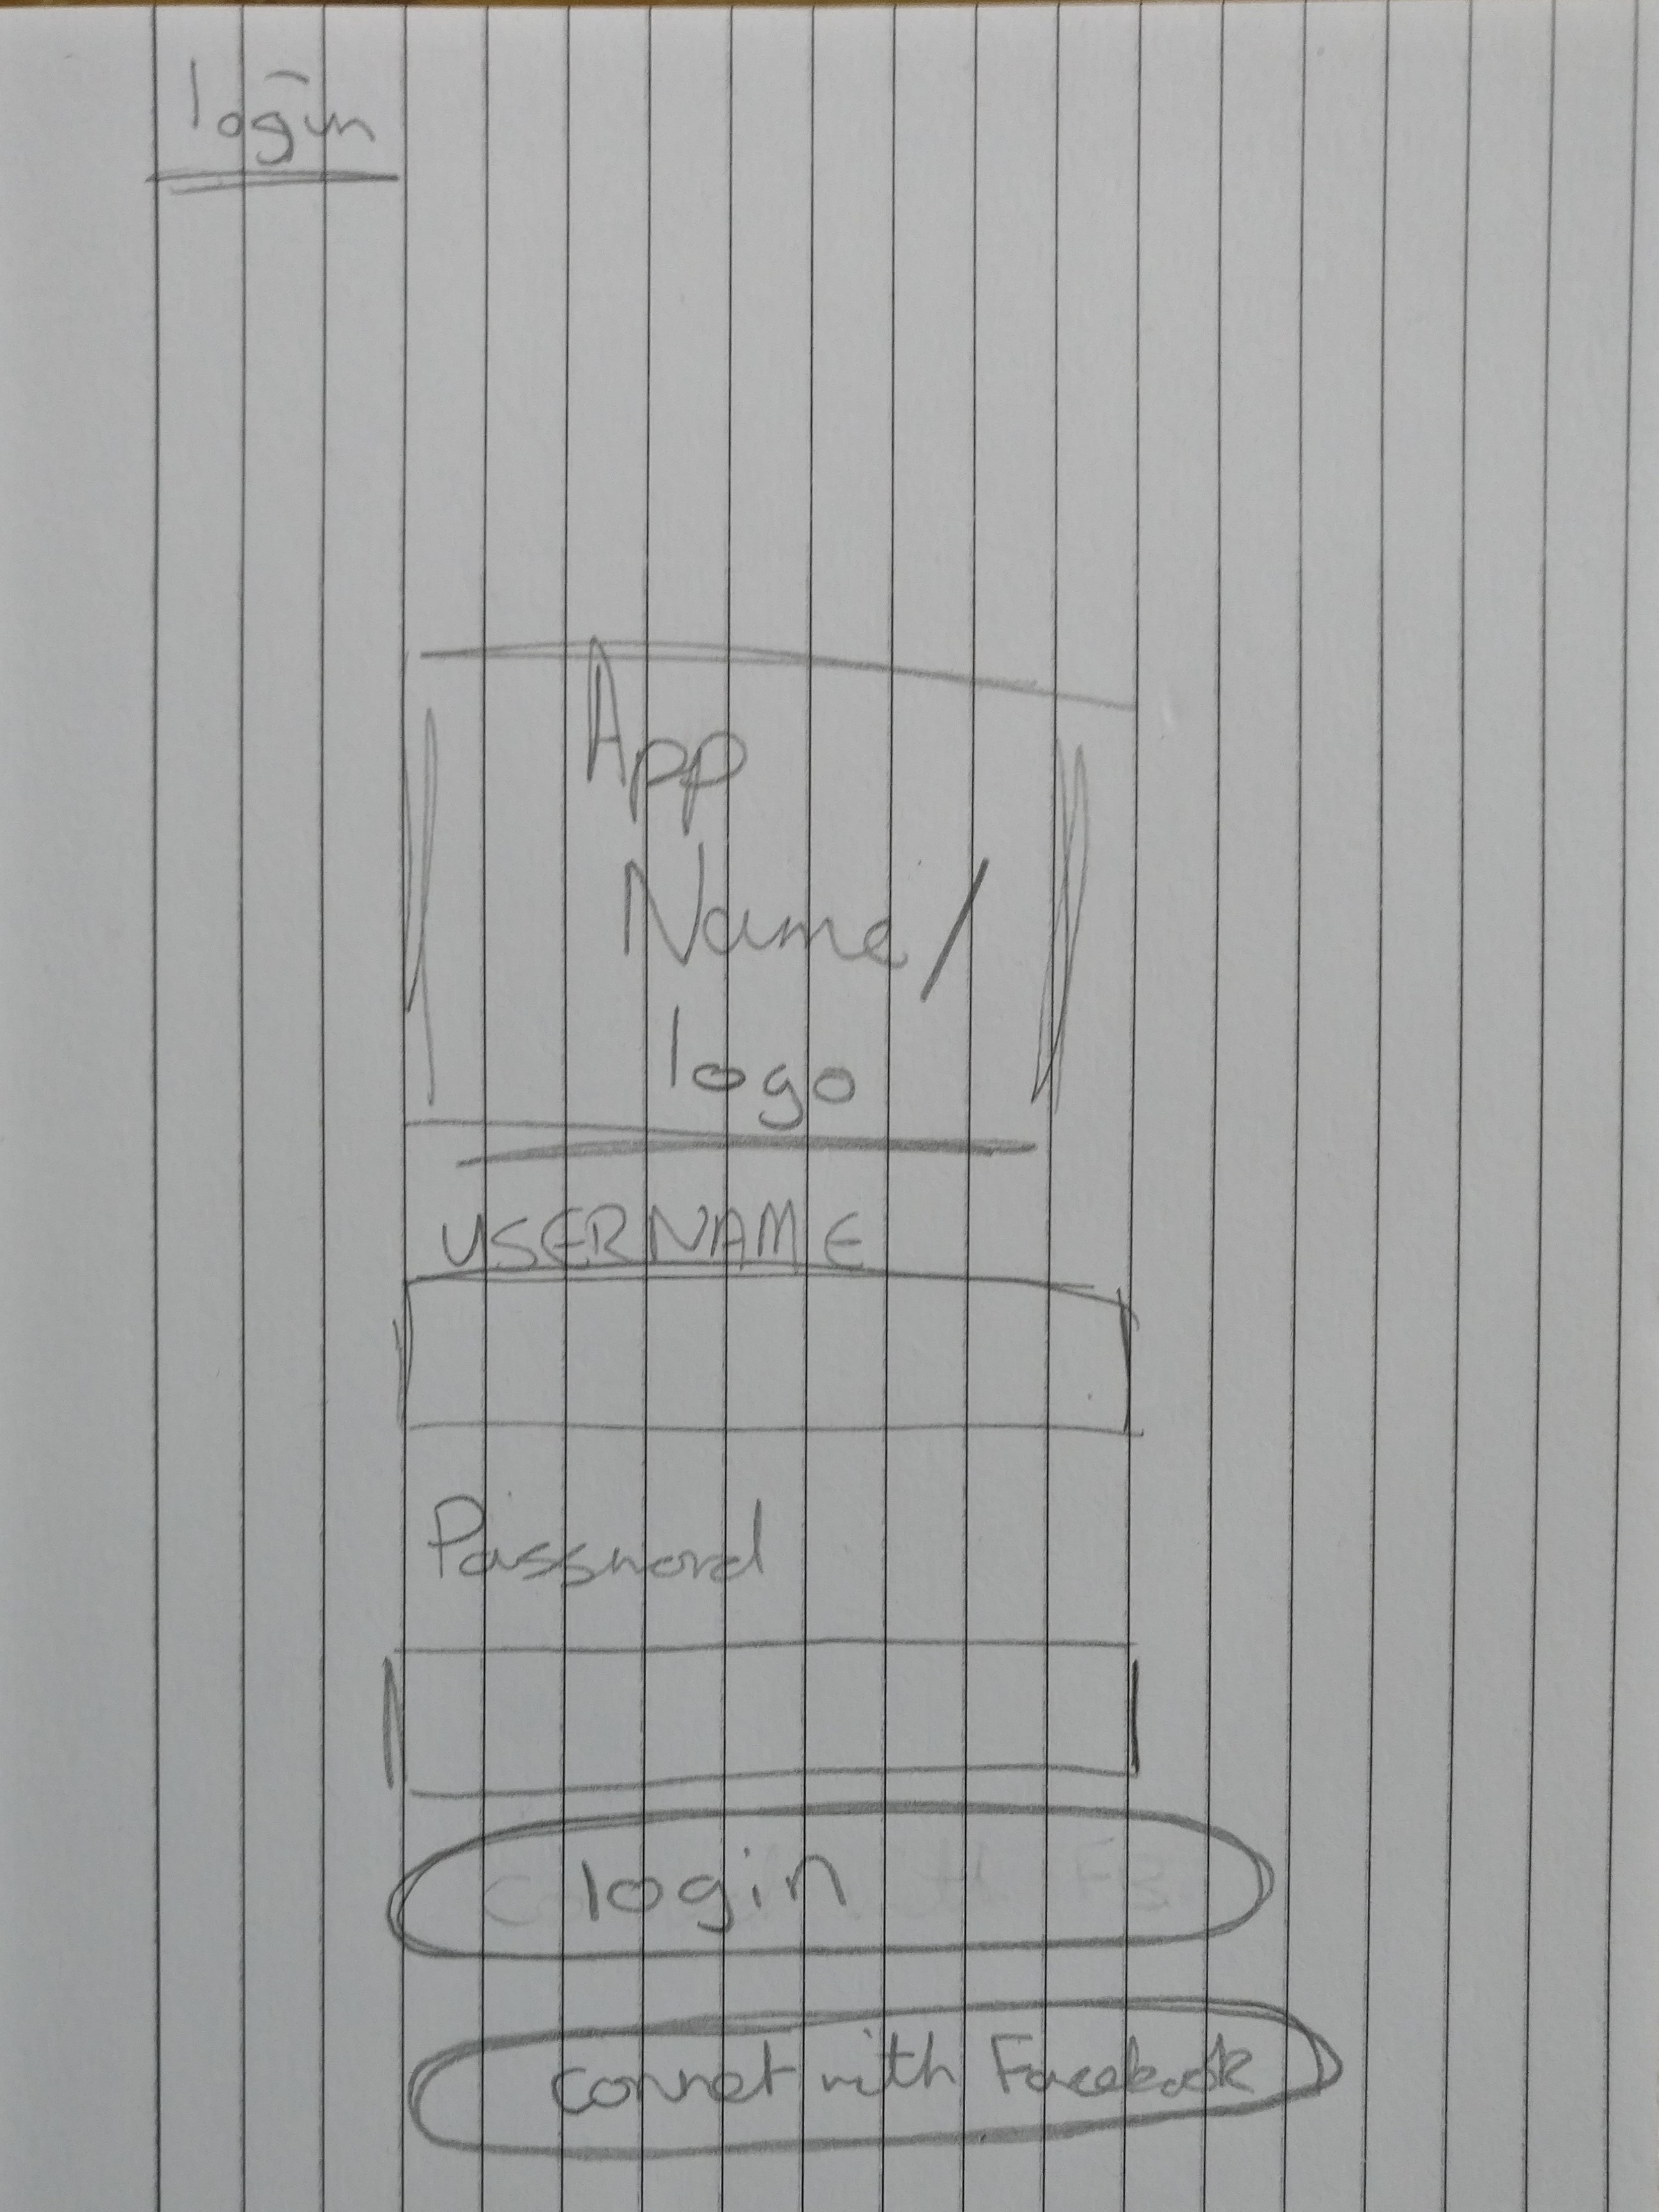 login
App
Name/
logo
USERNAME
Password
login
connet with Facebook